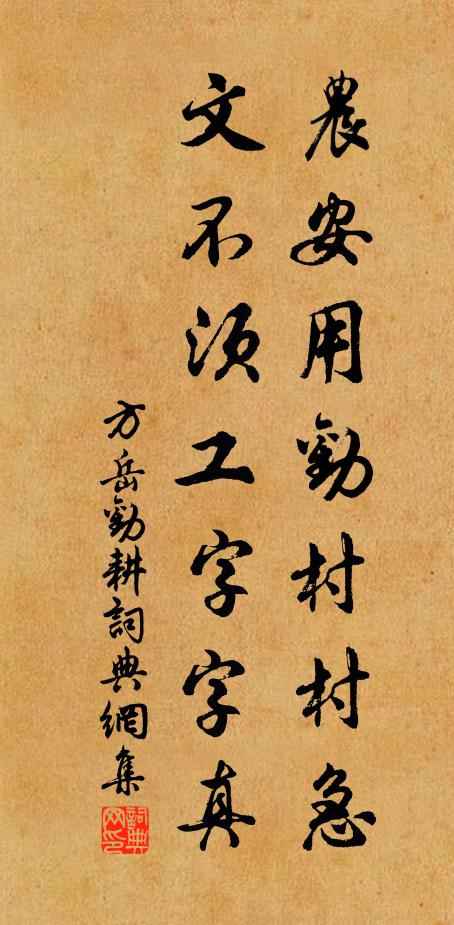 農安用勸村村急
文不須工字字真
方岳勸耕詞典網集
詞典网印